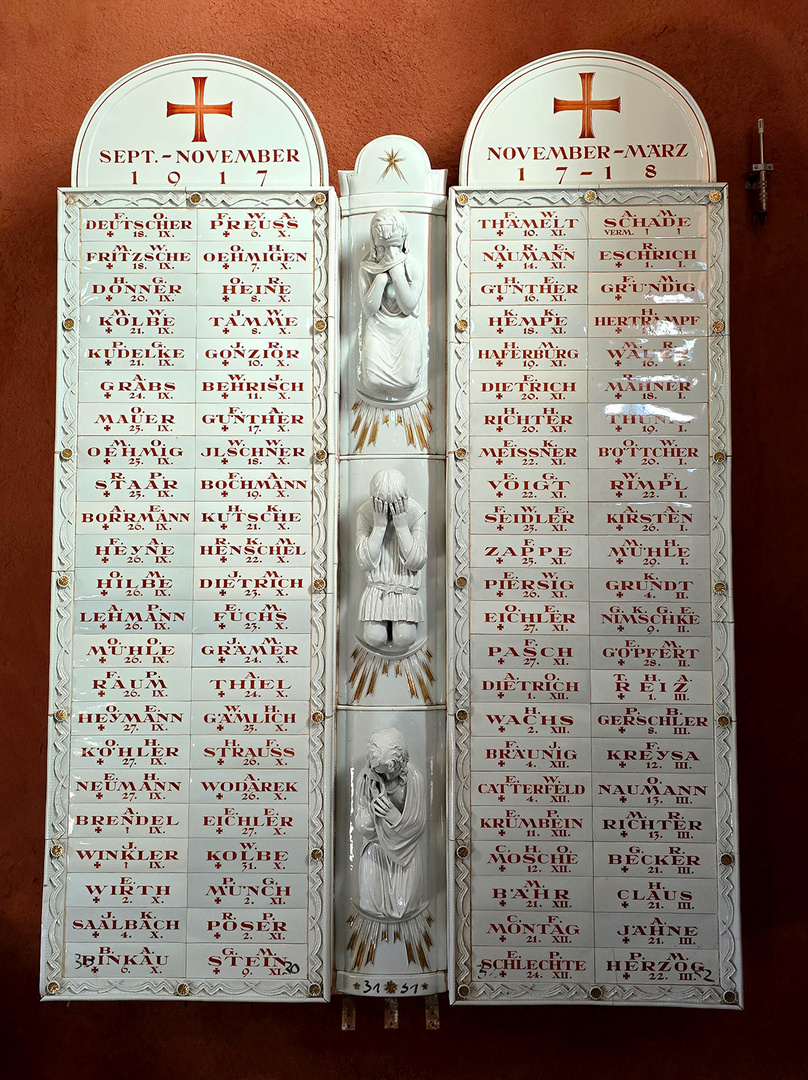 SEPT.–NOVEMBER
1 9 1 7
F. O.
DEUTSCHER
✠ 18. IX.
M. W.
FRITZSCHE
✠ 18. IX.
H. G.
DONNER
✠ 20. IX.
M. W.
KOLBE
✠ 21. IX.
P. G.
KUDELKE
✠ 21. IX.
A.
GRABS
✠ 24. IX.
O.
MAUER
✠ 25. IX.
M. O.
OEHMIG
✠ 25. IX.
R. P.
STAAR
✠ 25. IX.
A. E.
BORRMANN
✠ 26. IX.
F. A.
HEYNE
✠ 26. IX.
O. M.
HILBE
✠ 26. IX.
A. P.
LEHMANN
✠ 26. IX.
O. O.
MÜHLE
✠ 26. IX.
F. P.
RAUM
✠ 26. IX.
O. E.
HEYMANN
✠ 27. IX.
O. H.
KÖHLER
✠ 27. IX.
E. H.
NEUMANN
✠ 27. IX.
E.
BRENDEL
✠ ? IX.
J.
WINKLER
✠ ? IX.
E.
WIRTH
✠ 2. X.
J. K.
SAALBACH
✠ 4. X.
B. A.
PINKAU
✠ 6. X.
F. W. A.
PREUSS
✠ 6. X.
O. H.
OEHMIGEN
✠ 7. X.
O. R.
HEINE
✠ 8. X.
J. W.
TAMME
✠ 8. X.
J. R.
GONZIOR
✠ 10. X.
W. J.
BEHRISCH
✠ 11. X.
F. A.
GÜNTHER
✠ 17. X.
W. W.
JLSCHNER
✠ 18. X.
F. A.
BOCHMANN
✠ 19. X.
H. K.
KUTSCHE
✠ 21. X.
R. K. M.
HENSCHEL
✠ 22. X.
J. M.
DIETRICH
✠ 23. X.
E. M.
FUCHS
✠ 23. X.
J. M.
GRÄMER
✠ 24. X.
A.
THIEL
✠ 24. X.
W. H.
GÄMLICH
✠ 25. X.
H. F.
STRAUSS
✠ 26. X.
A.
WODAREK
✠ 26. X.
E. E.
EICHLER
✠ 27. X.
W.
KOLBE
✠ 31. X.
P. G.
MÜNCH
✠ 2. XI.
R. P.
POSER
✠ 2. XI.
G. M.
STEIN
✠ 9. XI.
30
31 31
NOVEMBER–MÄRZ
1 7 – 1 8
E. W.
THÄMELT
✠ 10. XI.
O. R. E.
NAUMANN
✠ 14. XI.
H. E.
GÜNTHER
✠ 16. XI.
K. K.
HEMPE
✠ 18. XI.
H. M.
HAFERBURG
✠ 19. XI.
E.
DIETRICH
✠ 20. XI.
H. H.
RICHTER
✠ 20. XI.
E. K.
MEISSNER
✠ 22. XI.
E. G.
VOIGT
✠ 22. XI.
F. W.
SEIDLER
✠ 23. XI.
F.
ZAPPE
✠ 25. XI.
E. W.
PIERSIG
✠ 26. XI.
O. E.
EICHLER
✠ 27. XI.
F.
PASCH
✠ 27. XI.
A. O.
DIETRICH
✠ 1. XII.
H.
WACHS
✠ 2. XII.
F. J.
BRÄUNIG
✠ 4. XII.
E. W.
CATTERFELD
✠ 4. XII.
E. P.
KRUMBEIN
✠ 11. XII.
C. H. O.
MOSCHE
✠ 12. XII.
M.
BÄHR
✠ 21. XII.
C. F.
MONTAG
✠ 21. XII.
E. P.
SCHLECHTE
✠ 24. XII.
A. M.
SCHADE
VERM. ? ?
R.
ESCHRICH
✠ 1. I.
F. M.
GRÜNDIG
H.
HERTRAMPF
R.
✠ 16. I.
R.
MÄHNER
✠ 18. I.
✠ 19. I.
O. W.
BÖTTCHER
✠ 20. I.
W. E.
RIMPL
✠ 22. I.
A. A.
KIRSTEN
✠ 26. I.
M. H.
MÜHLE
✠ 29. I.
K.
GRUNDT
✠ 4. II.
G. K. G. E.
NIMSCHKE
✠ 9. II.
E. M.
GÖPFERT
✠ 28. II.
T. H. A.
REIZ
✠ 1. III.
P. B.
GERSCHLER
✠ 8. III.
F.
KREYSA
✠ 12. III.
O.
NAUMANN
✠ 13. III.
M. R.
RICHTER
✠ 13. III.
G. R.
BECKER
✠ 21. III.
H.
CLAUS
✠ 21. III.
A.
JÄHNE
✠ 21. III.
P. M.
HERZOG
✠ 22. III.